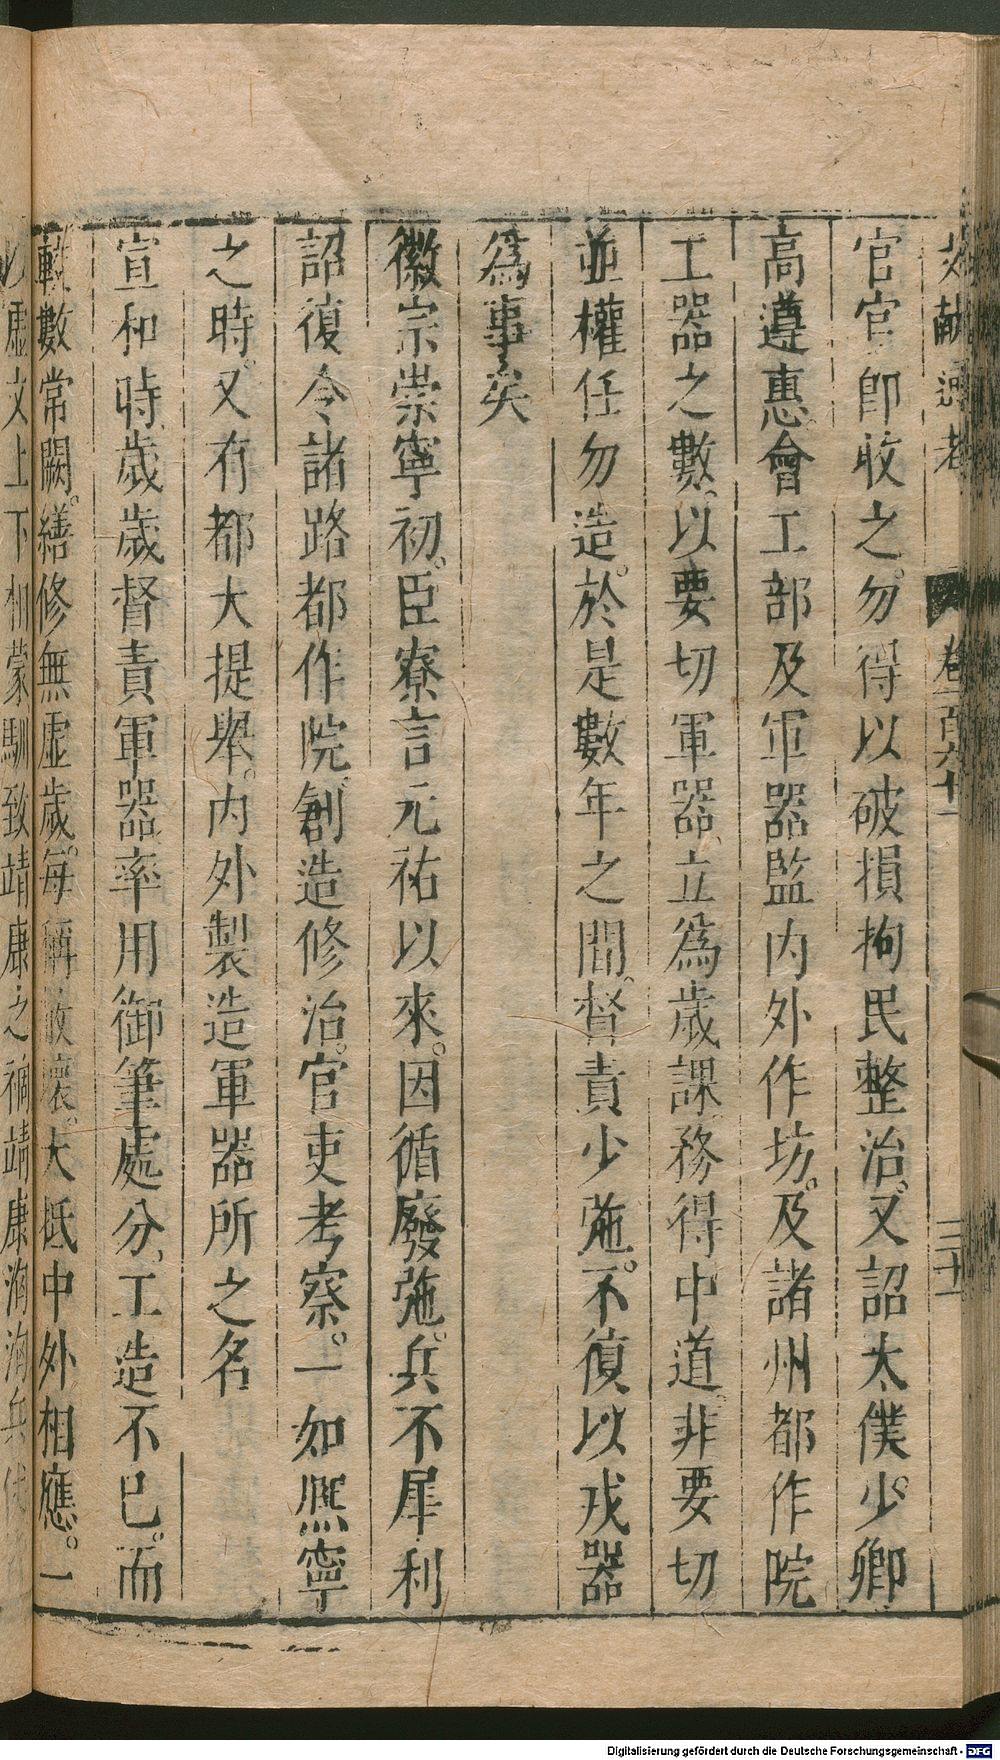 文獻通考 卷一百六十一 三十一
官官即收之。勿得以破損拘民整治。又詔太僕少卿
高遵惠。會工部及軍器監内外作坊。及諸州都作院
工器之數。以要切軍器、立爲歳課。務得中道。非要切
並權任勿造。於是數年之間。督責少弛。不復以戎器
爲事矣
徽宗崇寧初。臣寮言元祐以來。因循廢弛。兵不犀利
詔復令諸路都作院。創造修治。官吏考察。一如熈寧
之時。又有都大提舉。内外製造軍器所之名
宣和時。歳歳督責軍器。率用御筆處分、工造不已。而
較數常闕。繕修無虚歳。毎稱敝壞。大抵中外相應。一
以虚文上下相蒙馴致靖康之禍靖康洶洶兵
Digitalisierung gefördert durch die Deutsche Forschungsgemeinschaft - DFG